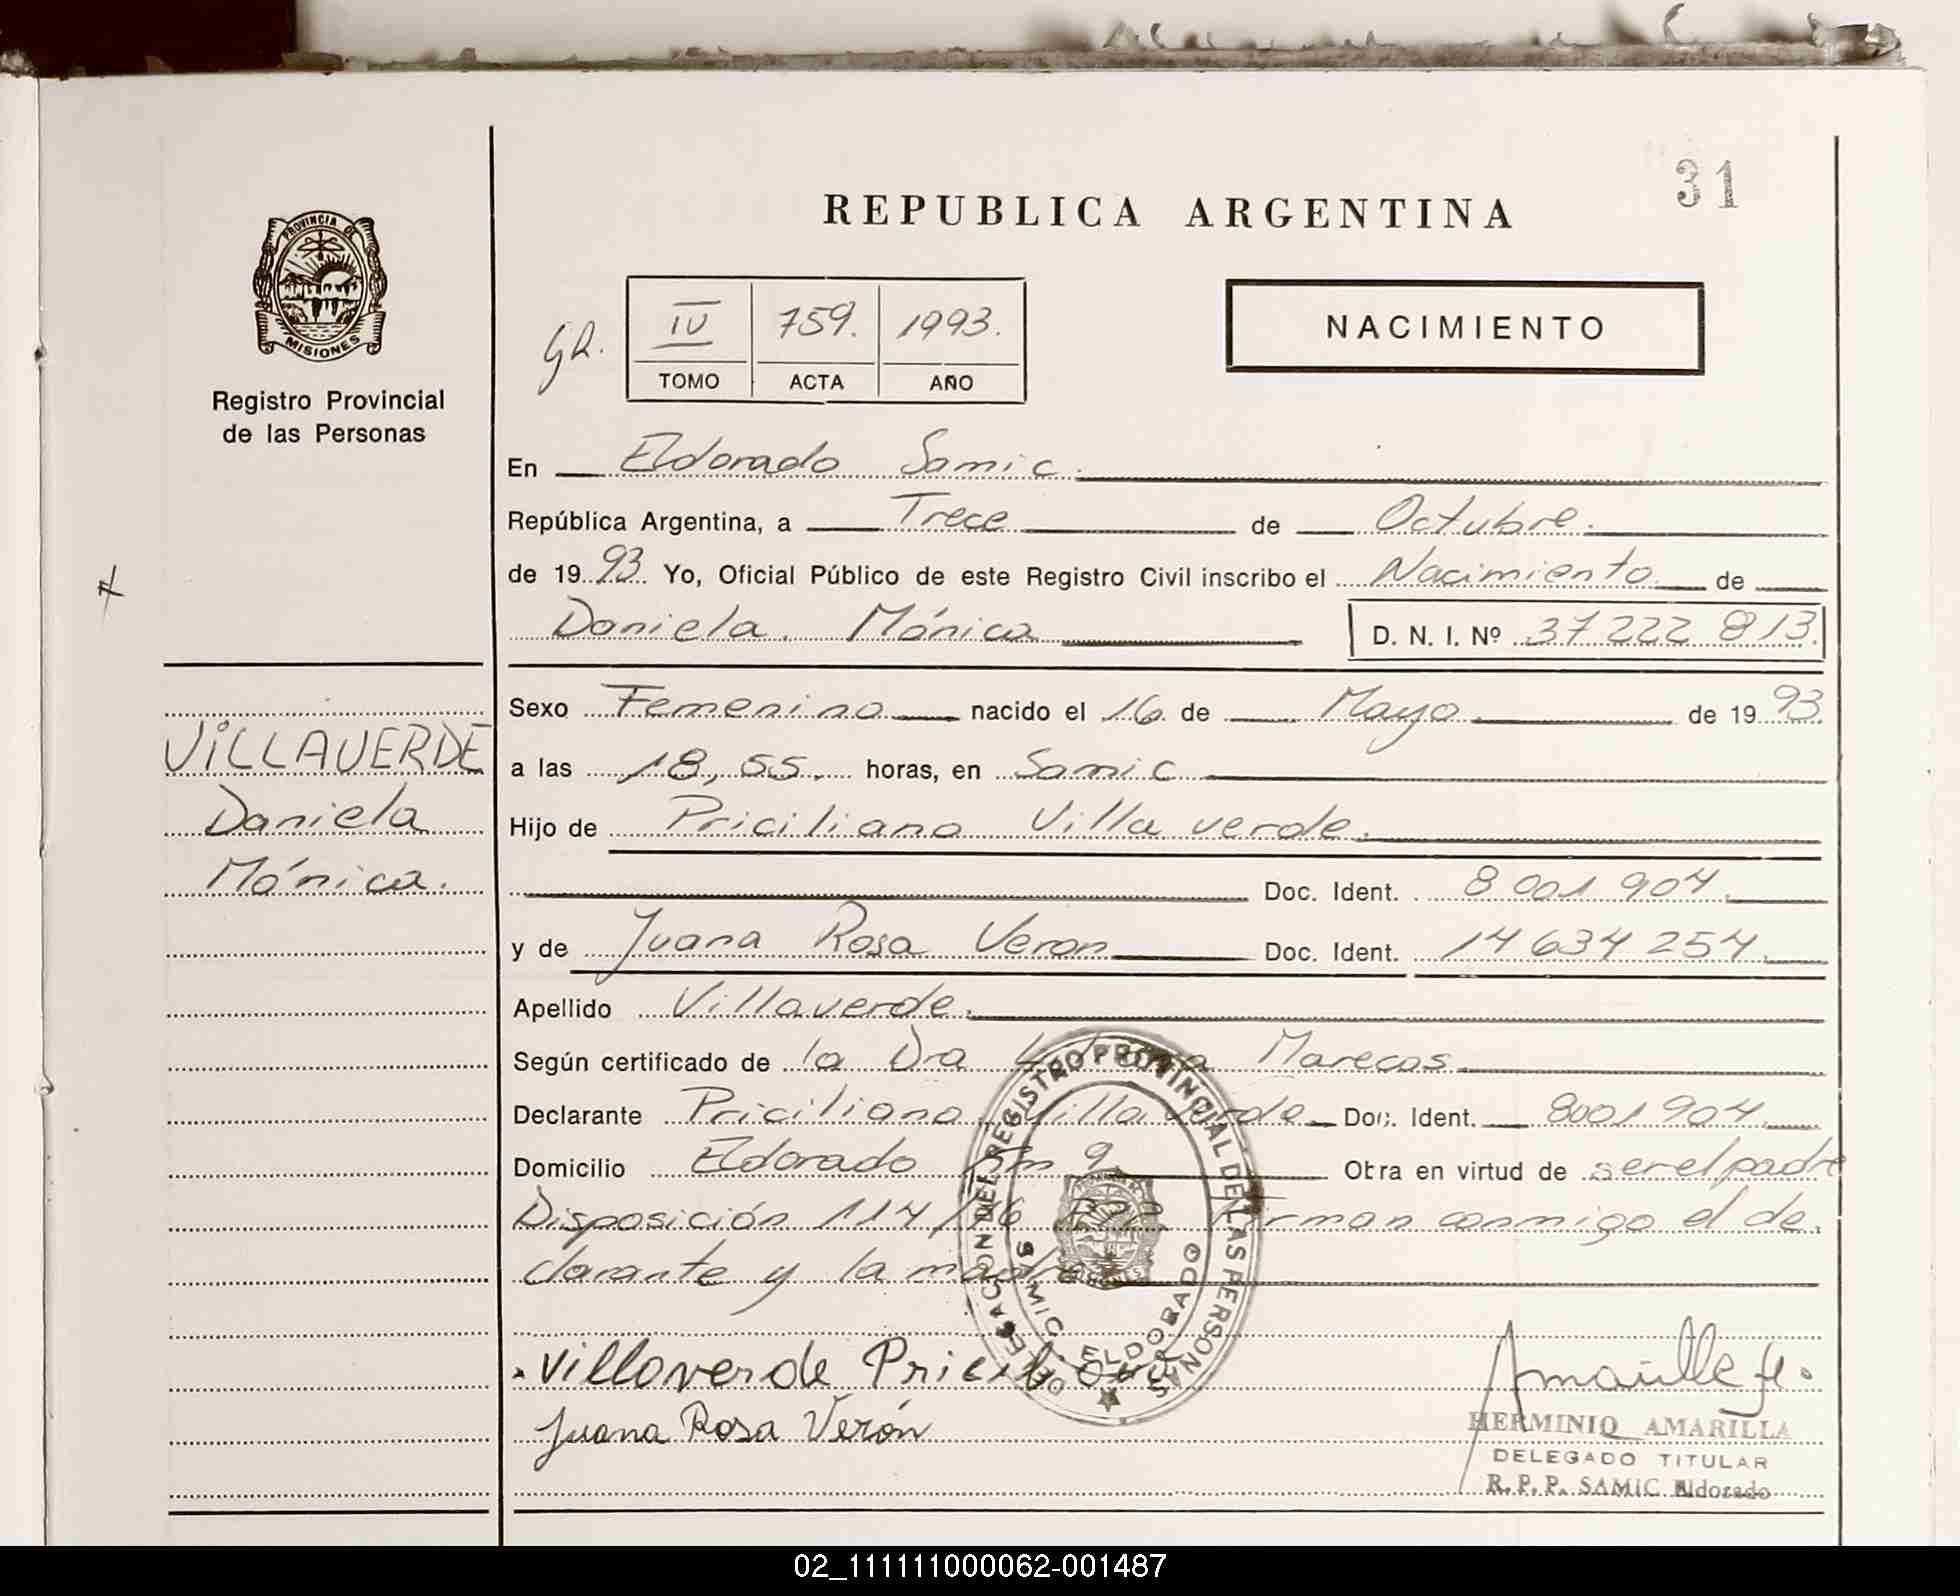 31
REPUBLICA ARGENTINA
PROVINCIA DE
MISIONES
Registro Provincial
de las Personas
GR.
IV 759. 1993.
TOMO ACTA AÑO
NACIMIENTO
En Eldorado Samic.
República Argentina, a Trece de Octubre.
de 1993 Yo, Oficial Público de este Registro Civil inscribo el Nacimiento de
Daniela Mónica D. N. I. Nº 37 222 813.
Sexo Femenino nacido el 16 de Mayo de 1993
VILLAVERDE
Daniela
Mónica.
a las 18,55. horas, en Samic
Hijo de Priciliano Villaverde.
Doc. Ident. 8 001 904.
y de Juana Rosa Veron Doc. Ident. 14 634 254.
Apellido Villaverde.
Según certificado de la Dra Marecos
Declarante Priciliano Villaverde Doc. Ident. 8001904
Domicilio Eldorado Km 9 Obra en virtud de ser el padre
Disposición 114/76 Firman conmigo el de
clarante y la madre
DELEGACION DEL REGISTRO PROVINCIAL DE LAS PERSONAS
SAMIC ELDORADO
Villaverde Priciliano
Juana Rosa Verón
HERMINIO AMARILLA
DELEGADO TITULAR
R. P. P. SAMIC Eldorado
02_111111000062-001487